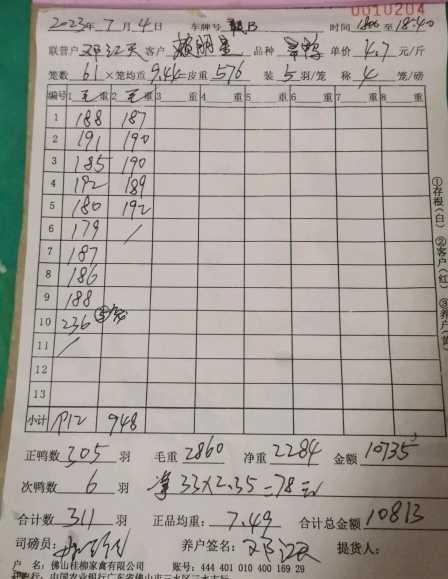 0010204
2023年 7 月 4 日 车牌号 时间 至 18:40
联营户 邓江天 客户 品种 单价 4.7 元/斤
笼数 61 ×笼均重 9.44 =皮重 576 装 5 羽/笼 称 4 笼/磅
编号 1 毛重 2 毛重 3 重 4 重 5 重 6 重 7 重 8 重
1 188 187
2 191 190
3 185 190
4 192 189
5 180 192
6 179 /
7 187
8 186
9 188
10 236
11 /
12
13
小计 948
正鸭数 305 羽 毛重 2860 净重 2284 金额 10735
次鸭数 6 羽 净 33×2.35=78元
合计数 311 羽 正品均重: 7.49 合计总金额 10813
司磅员: 养户签名: 提货人:
户 名: 佛山桂柳家禽有限公司 账号: 444 401 010 400 169 29
①存根(白) ②客户(红) ③养户(黄)